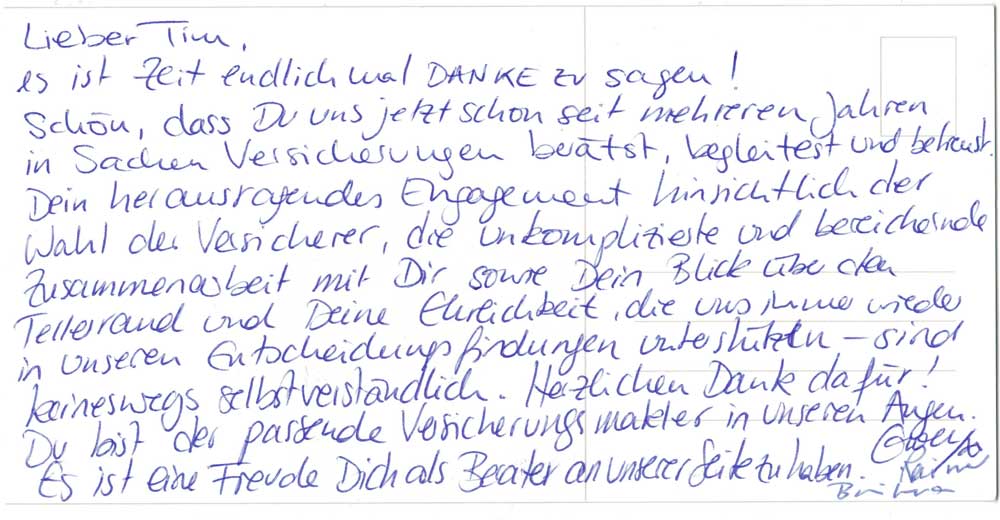 Lieber Tim,
es ist Zeit endlich mal DANKE zu sagen!
Schön, dass Du uns jetzt schon seit mehreren Jahren
in Sachen Versicherungen berätst, begleitest und betreust.
Dein herausragendes Engagement hinsichtlich der
Wahl der Versicherer, die unkomplizierte und bereichernde
Zusammenarbeit mit Dir sowie Dein Blick über den
Tellerrand und Deine Ehrlichkeit, die uns immer wieder
in unseren Entscheidungsfindungen unterstützen – sind
keineswegs selbstverständlich. Herzlichen Dank dafür!
Du bist der passende Versicherungsmakler in unseren Augen.
Es ist eine Freude Dich als Berater an unserer Seite zu haben.